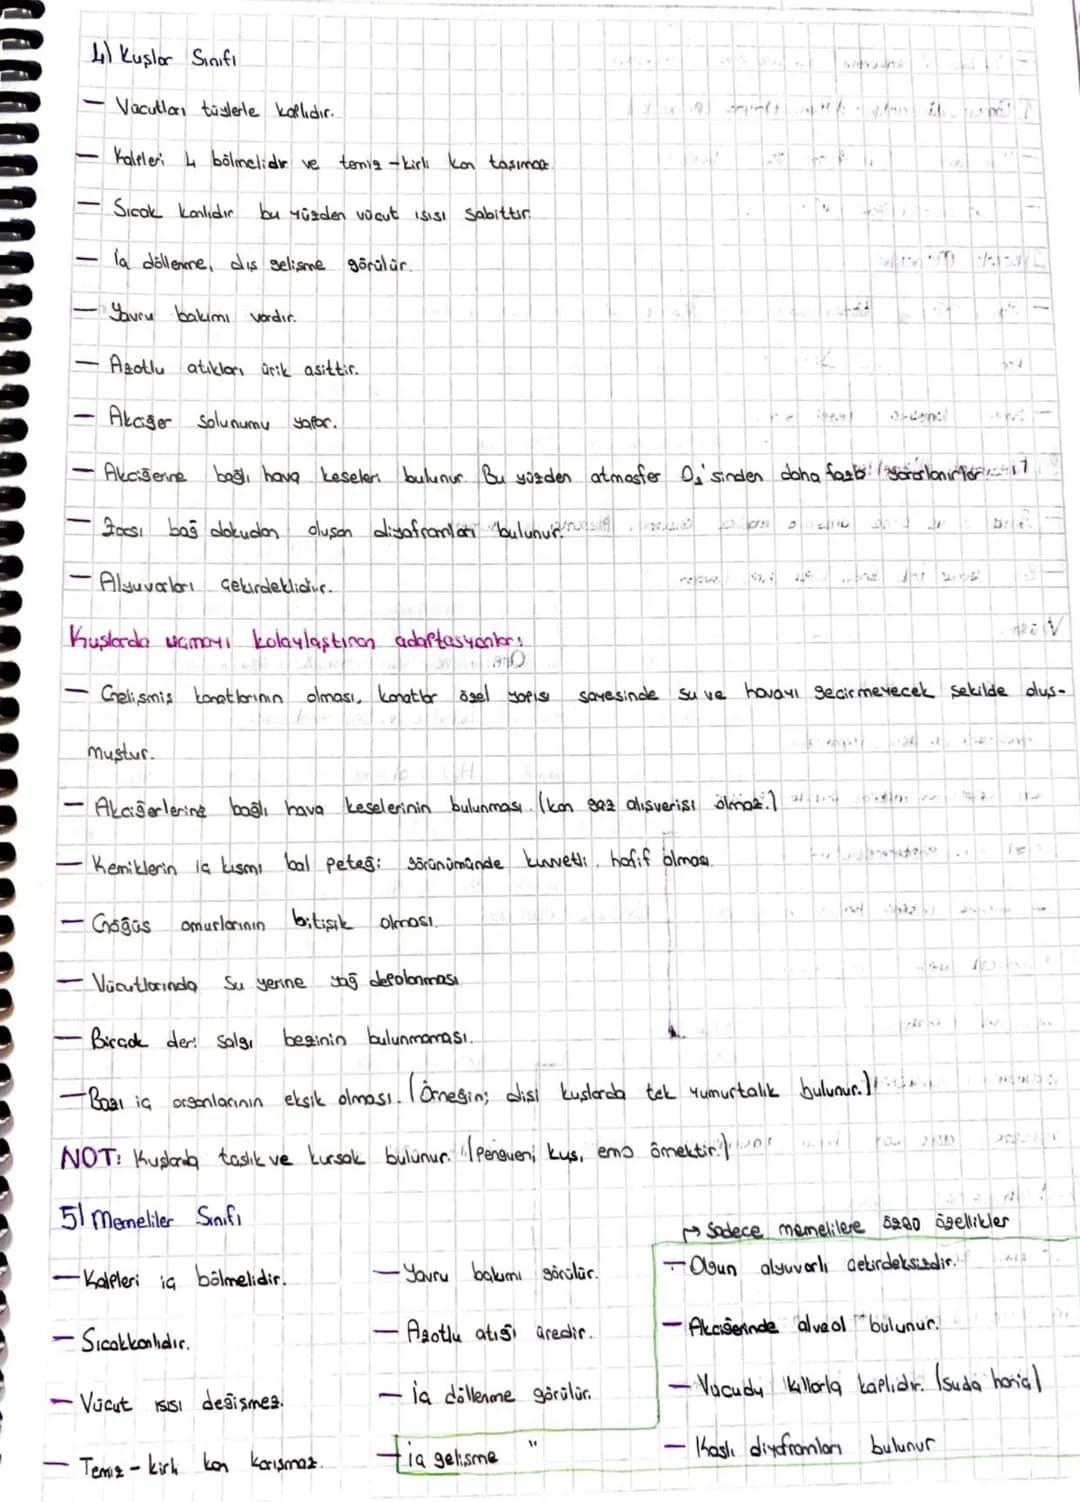 4) Kuşlar Sınıfı
— Vücutları tüylerle kaplıdır.
— Kalpleri 4 bölmelidir ve temiz-kirli kan taşımaz.
— Sıcak kanlıdır bu yüzden vücut ısısı sabittir.
— İç döllenme, dış gelişme görülür.
— Yavru bakımı vardır.
— Azotlu atıkları ürik asittir.
— Akciğer solunumu yapar.
— Akciğerine bağlı hava keseleri bulunur. Bu yüzden atmosfer O₂'sinden daha fazla yararlanırlar.
— Zarsı bağ dokudan oluşan diyaframları bulunur.
— Alyuvarları çekirdeklidir.
Kuşlarda uçmayı kolaylaştıran adaptasyonlar:
— Gelişmiş kanatlarının olması, kanatlar özel yapısı sayesinde su ve havayı geçirmeyecek şekilde oluş-
muştur.
— Akciğerlerine bağlı hava keselerinin bulunması. (kan gaz alışverişi olmaz.)
— Kemiklerin iç kısmı bal peteği görünümünde kuvvetli, hafif olması.
— Göğüs omurlarının bitişik olması.
— Vücutlarında su yerine yağ depolanması
— Birçok deri salgı bezinin bulunmaması.
— Bazı iç organlarının eksik olması. (Örneğin; dişi kuşlarda tek yumurtalık bulunur.)
NOT: Kuşlarda taşlık ve kursak bulunur. (Penguen, kuş, emo örnektir.)
5) Memeliler Sınıfı
— Kalpleri iç bölmelidir.
— Sıcakkanlıdır.
— Vücut ısısı değişmez.
— Temiz-kirli kan karışmaz.
— Yavru bakımı görülür.
— Azotlu atığı üredir.
— İç döllenme görülür.
— İç gelişme "
→ Sadece memelilere özgü özellikler
— Olgun alyuvarlı çekirdeksizdir.
— Akciğerinde alveol bulunur.
— Vücudu kıllarla kaplıdır. (suda hariç)
— Kaslı diyaframları bulunur